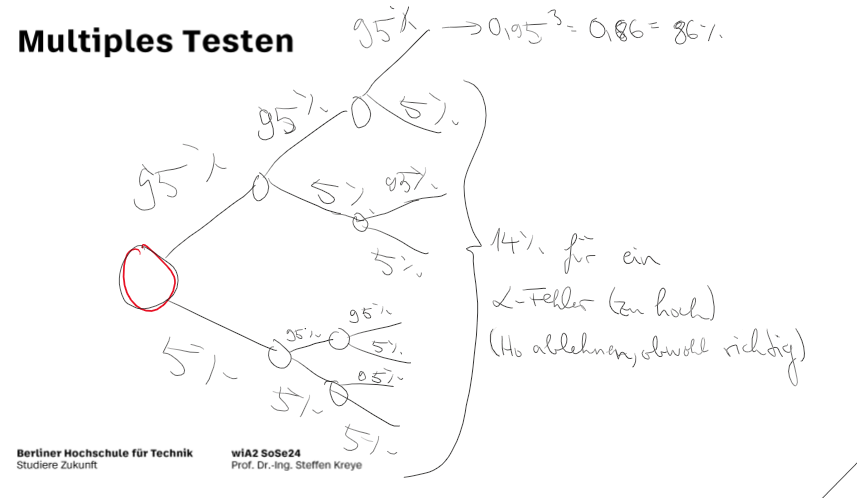 Multiples Testen
95% → 0,95³ = 0,86 = 86%
95%
5%.
95%
5%
95%.
5%.
14% für ein
α-Fehler (zu hoch)
(H₀ ablehnen, obwohl richtig)
95%
95%
5%.
5%.
95%.
5%.
5%.
Berliner Hochschule für Technik
Studiere Zukunft
wiA2 SoSe24
Prof. Dr.-Ing. Steffen Kreye